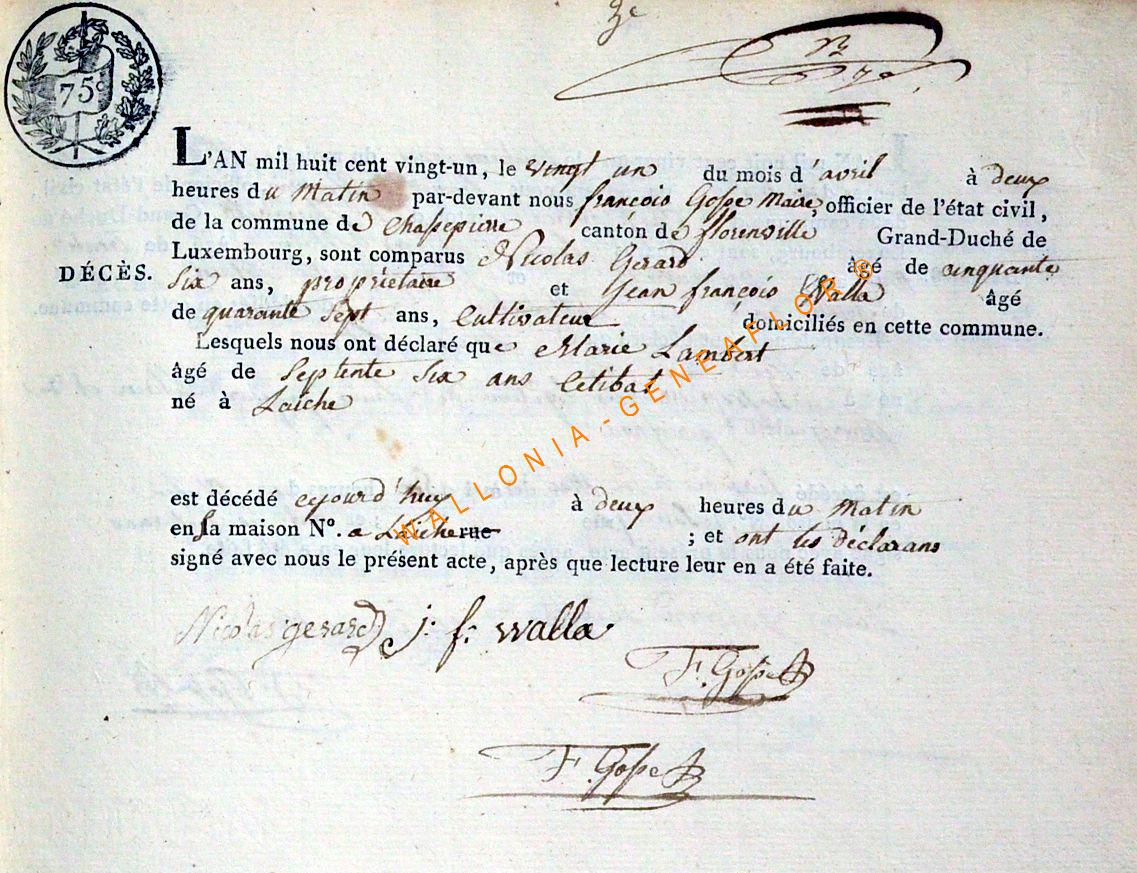 3e
75c
L'AN mil huit cent vingt-un, le vingt un du mois d'avril à deux
heures du Matin par-devant nous françois Gosse Maire, officier de l'état civil,
de la commune de Chassepierre canton de florenville Grand-Duché de
Luxembourg, sont comparus Nicolas Gerard âgé de cinquante
DÉCÈS.
Six ans, proprietaire et Jean françois Walla âgé
de quarante Sept ans, Cultivateur domiciliés en cette commune.
Lesquels nous ont déclaré que Marie Lambert
âgé de Septente Six ans Celibat
né à Laiche
est décédé cejourd'huy à deux heures du Matin
en sa maison N°. a Laiche rue ; et ont les déclarans
signé avec nous le présent acte, après que lecture leur en a été faite.
Nicolas gerard j: f: walla
F. Gosse
F. Gosse
WALLONIA-GENEAFLOR ©